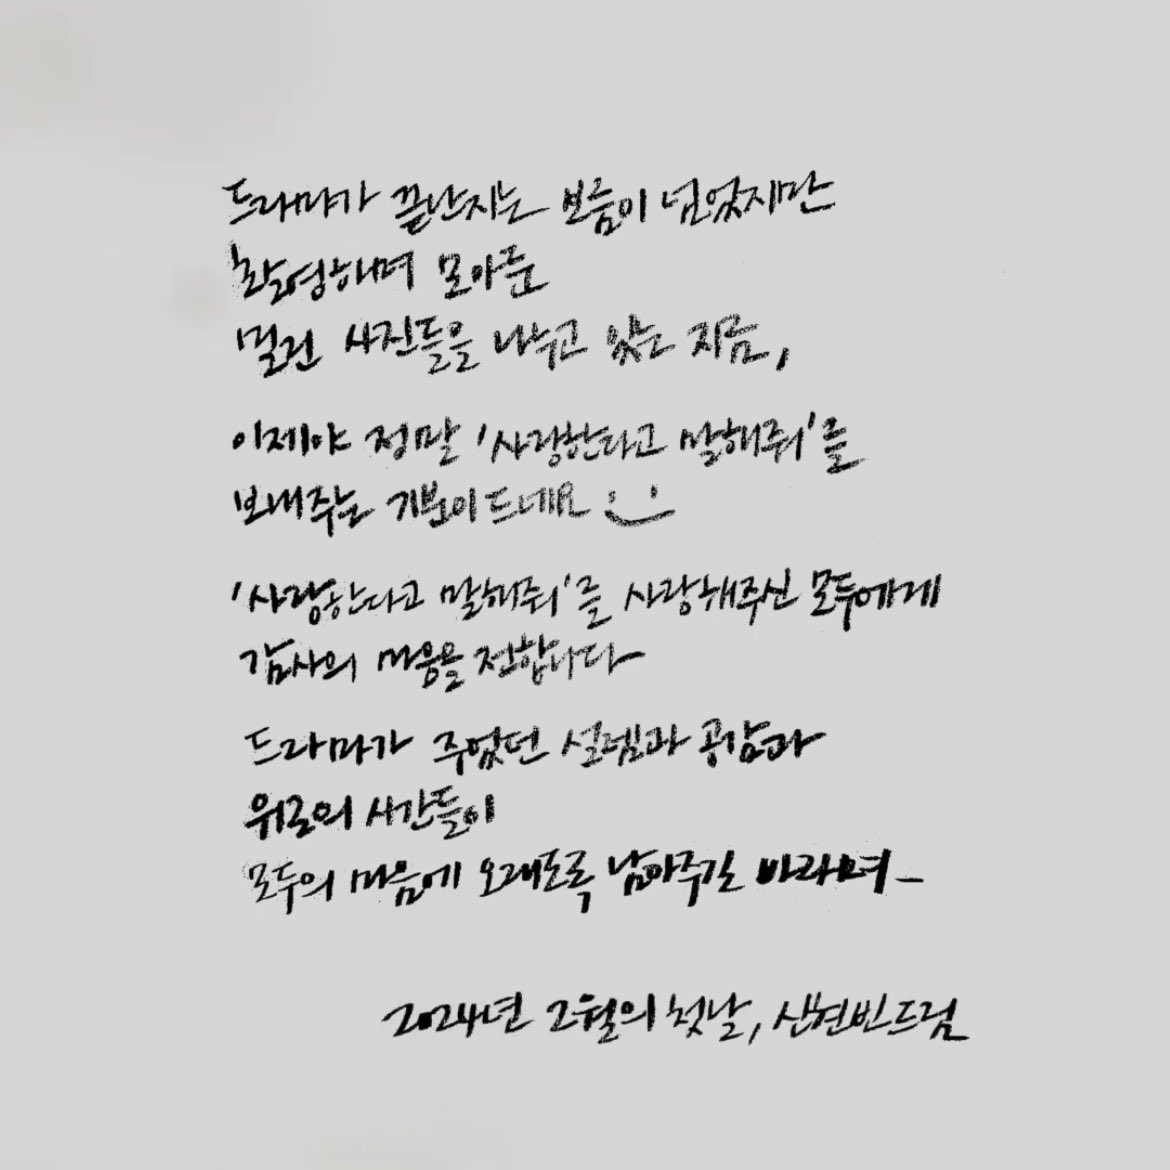 드라마가 끝난지는 보름이 넘었지만
촬영하며 모아둔
밀린 사진들을 나누고 있는 지금,
이제야 정말 '사랑한다고 말해줘'를
보내주는 기분이 드네요 :)
'사랑한다고 말해줘'를 사랑해주신 모두에게
감사의 마음을 전합니다
드라마가 주었던 설렘과 공감과
위로의 시간들이
모두의 마음에 오래도록 남아주길 바라며_
2024년 2월의 첫날, 신현빈드림